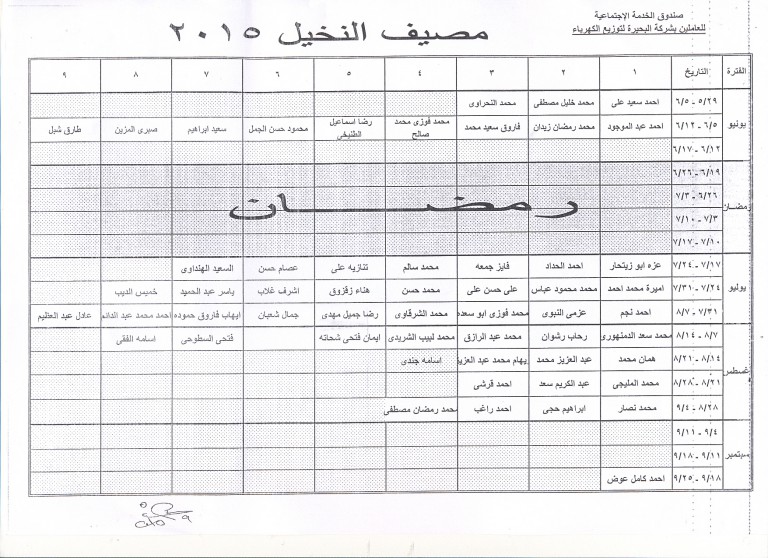 صندوق الخدمة الإجتماعية
للعاملين بشركة البحيرة لتوزيع الكهرباء
مصيف النخيل ٢٠١٥
الفترة التاريخ ١ ٢ ٣ ٤ ٥ ٦ ٧ ٨ ٩
يونيو
٥/٢٩ - ٦/٥ احمد سعيد على محمد خليل مصطفى محمد النحراوى
٦/٥ - ٦/١٢ احمد عبد الموجود محمد رمضان زيدان فاروق سعيد محمد محمد فوزى محمد صالح رضا اسماعيل الطنيخى محمود حسن الجمل سعيد ابراهيم صبرى المزين طارق شبل
٦/١٢ - ٦/١٧
رمضان
٦/١٩ - ٦/٢٦
٦/٢٦ - ٧/٣
رمضان
٧/٣ - ٧/١٠
٧/١٠ - ٧/١٧
يوليو
٧/١٧ - ٧/٢٤ عزه ابو زيتحار احمد الحداد فايز جمعه محمد سالم تنازيه على عصام حسن السعيد الهنداوى
٧/٢٤ - ٧/٣١ اميرة محمد احمد محمد محمود عباس على حسن على محمد حسن هناء زقزوق اشرف غلاب ياسر عبد الحميد خميس الديب
٧/٣١ - ٨/٧ احمد نجم عزمى النبوى محمد فوزى ابو سعده محمد الشرقاوى رضا جميل مهدى جمال شعبان ايهاب فاروق حموده احمد محمد عبد الدائم عادل عبد العظيم
اغسطس
٨/٧ - ٨/١٤ محمد سعد الدمنهورى رحاب رشوان محمد عبد الرازق محمد لبيب الشريدى ايمان فتحى شحاته فتحى السطوحى اسامه الفقى
٨/١٤ - ٨/٢١ همان محمد عبد العزيز محمد ريهام محمد عبد العزيز اسامه جندى
٨/٢١ - ٨/٢٨ محمد المليجى عبد الكريم سعد احمد قرشى
٨/٢٨ - ٩/٤ محمد نصار ابراهيم حجى احمد راغب محمد رمضان مصطفى
سبتمبر
٩/٤ - ٩/١١
٩/١١ - ٩/١٨
٩/١٨ - ٩/٢٥ احمد كامل عوض